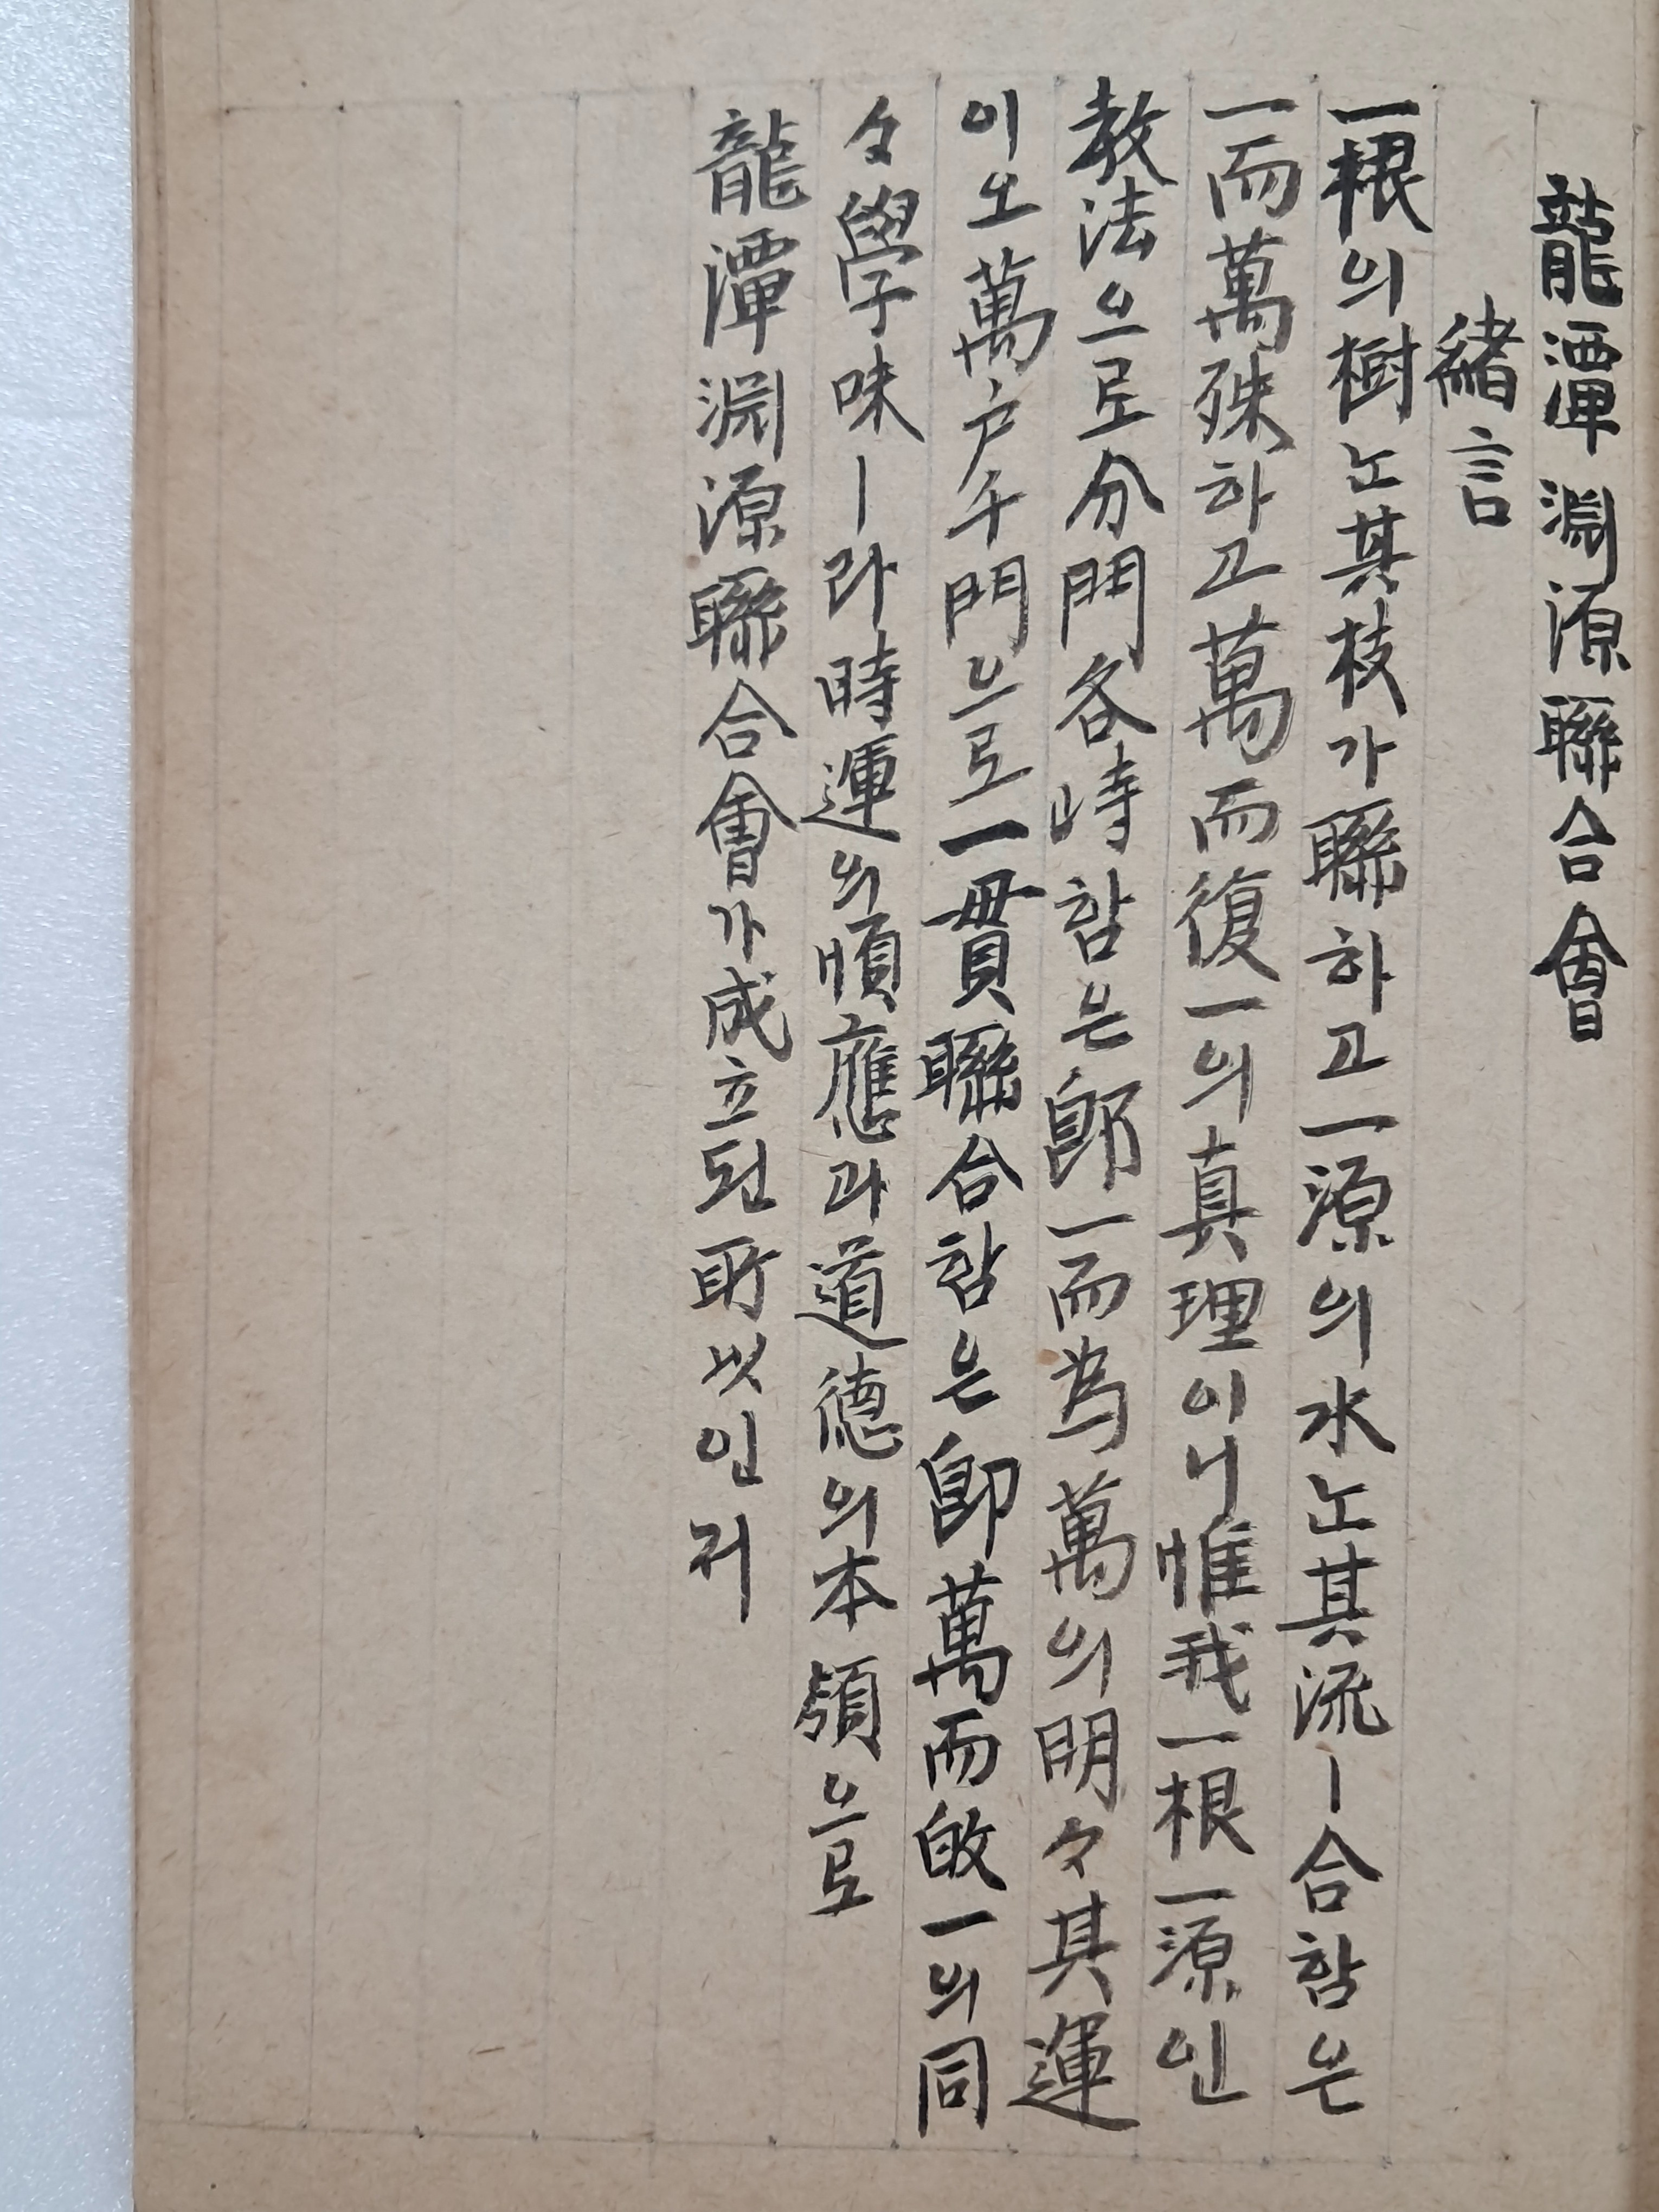 龍潭淵源聯合會
緖言
一根의樹노其枝가聯하고一源의水노其流ㅣ合함은
一而萬殊하고萬而復一의真理이니惟我一根一源인
敎法으로分門各峙함은卽一而為萬의明々其運
이오萬戶千門으로一貫聯合함은卽萬而啟一의同
々學味ㅣ라時運의順應과道德의本領으로
龍潭淵源聯合會가成立된所以인저